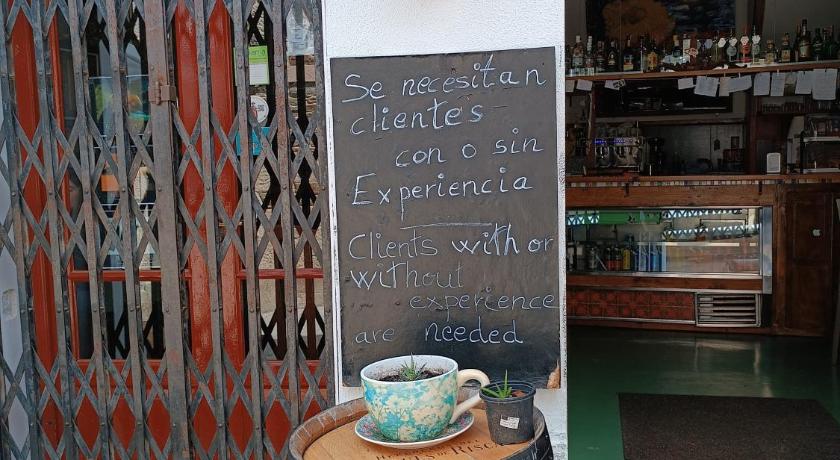 Se necesitan
clientes
con o sin
Experiencia
Clients with or
without
experience
are needed